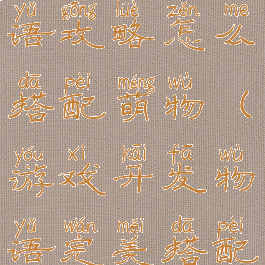 yǔ gōng lüè zěn me
语攻略怎么
dā pèi méng wù
搭配萌物(
yóu xì kāi fā wù
游戏开发物
yǔ wán měi dā pèi
语完美搭配